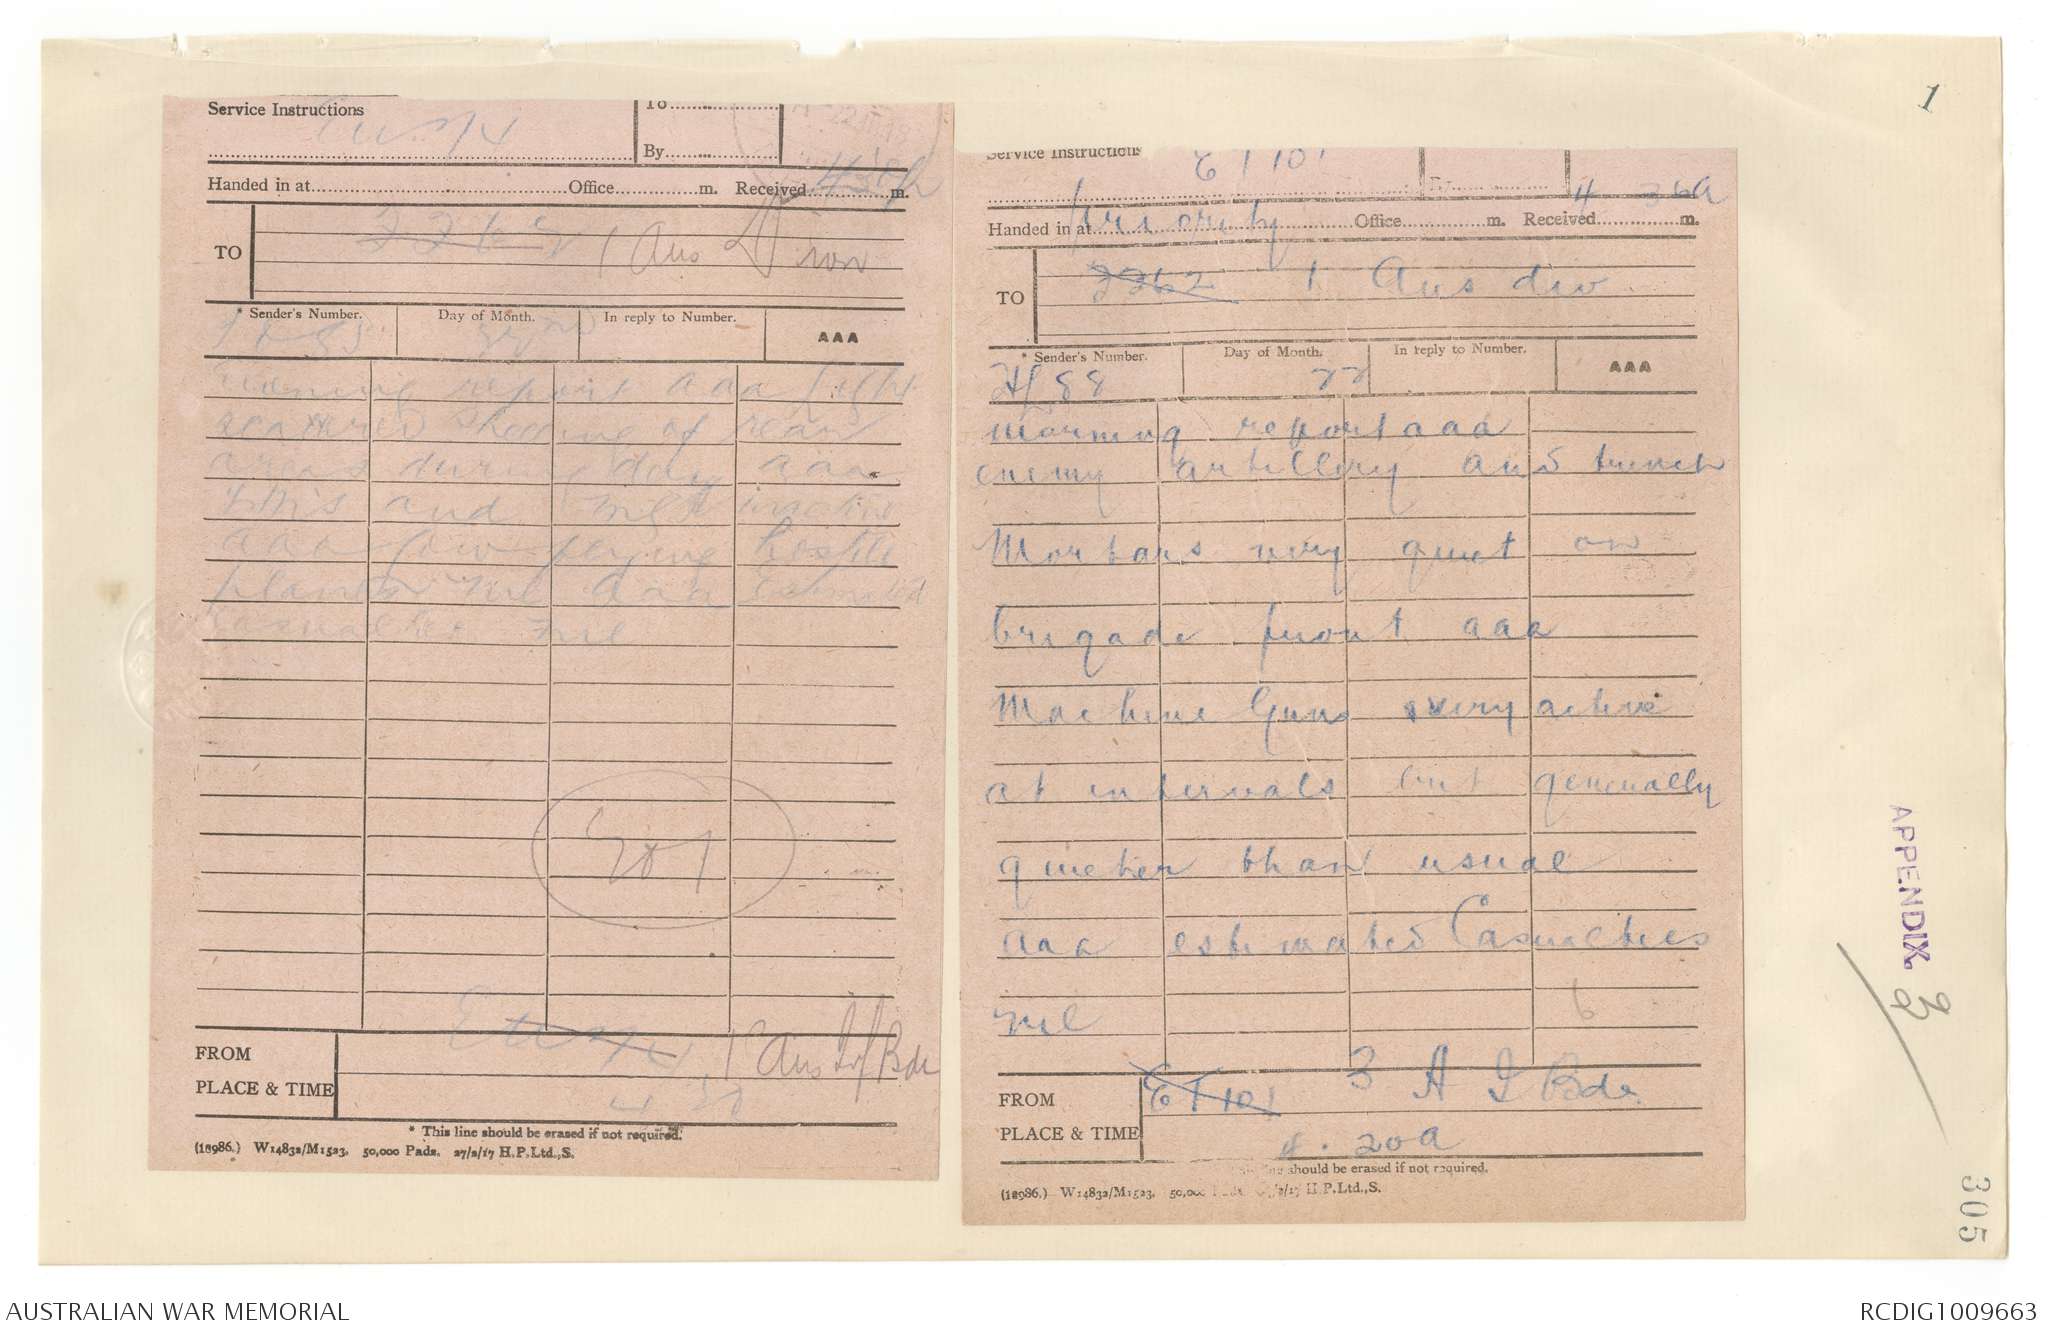 1
Service Instructions
To
By
Handed in at Office m. Received m.
TO 1 Aus Divn
* Sender's Number. Day of Month. In reply to Number. AAA
22nd
Evening report aaa light
scattered shelling of rear
areas during day aaa
TM's and MGs inactive
aaa low flying hostile
planes nil aaa Estimated
Casualties nil
FROM 1 Aus Inf Bde
PLACE & TIME
4.30
* This line should be erased if not required.
(18986.) W14832/M1523. 50,000 Pads. 27/2/17 H.P.Ltd.,S.
Service Instructions ET 101
4 36a
Handed in at Priority Office m. Received m.
TO 1 Aus div
* Sender's Number. Day of Month. In reply to Number. AAA
88 22
Morning report aaa
enemy artillery and trench
Mortars very quiet on
brigade front aaa
Machine Guns very active
at intervals but generally
quieter than usual
aaa estimated Casualties
nil
6
FROM ET 101 3 A I Bde
PLACE & TIME 4.20a
should be erased if not required.
(18986.) W14832/M1523. 50,000 /2/17 H.P.Ltd.,S.
APPENDIX
305
AUSTRALIAN WAR MEMORIAL
RCDIG1009663